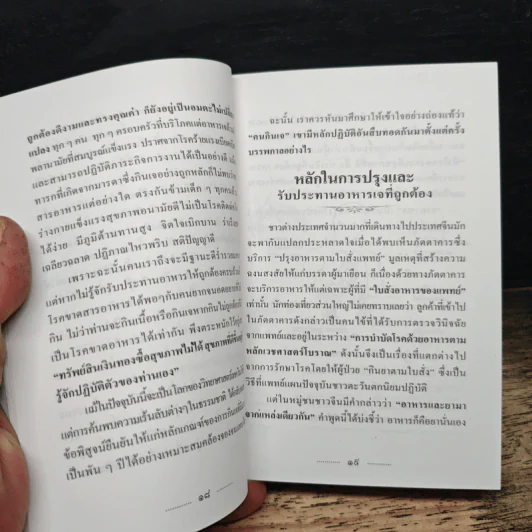 ถูกต้องดีงามและทรงคุณค่า ก็ยังอยู่เป็นอมตะไม่เปลี่ยน
แปลง ทุก ๆ คน ทุก ๆ ครอบครัวที่บริโภคแต่อาหารเจล้วน
พลานามัยที่สมบูรณ์แข็งแรง ปราศจากโรคร้ายแรงเบียดเบียน
และสามารถปฏิบัติภาระกิจการงานได้เป็นอย่างดี
ทารกที่เกิดจากมารดาซึ่งกินเจอย่างถูกหลักก็ไม่พบว่าขาด
สารอาหารแต่อย่างใด ตรงกันข้ามเด็ก ๆ ทุกคน
ร่างกายแข็งแรงสุขภาพอนามัยดีไม่เป็นโรคติดต่อ
ได้ง่าย มีภูมิต้านทานสูง จิตใจเบิกบาน ร่าเริง
เฉลียวฉลาด ปฏิภาณไหวพริบ สติปัญญาดี
เพราะฉะนั้นคนเราถึงจะมีฐานะดีร่ำรวย
แต่หากไม่รู้จักรับประทานอาหารให้ถูกต้อง
โรคขาดสารอาหารได้พอๆกับคนยากจนอดอยาก
กิน ไม่ว่าท่านจะกินเนื้อหรือกินเจหากกินไม่ถูกต้องก็
เป็นโรคขาดอาหารได้เท่ากัน พึงตระหนักไว้
"ทรัพย์สินเงินทองซื้อสุขภาพไม่ได้สุขภาพที่ดี
รู้จักปฏิบัติตัวของท่านเอง"
แม้ในปัจจุบันนี้จะเป็นโลกของวิทยาศาสตร์
แต่การค้นพบความเร้นลับต่างๆในธรรมชาติ ได้
ข้อพิสูจน์ยืนยันให้แก่หลักเกณฑ์ของการกินเจ
เป็นพัน ๆ ปีได้อย่างเหมาะสมคล้องจอง
๑๘
ฉะนั้น เราควรหันมาศึกษาให้เข้าใจอย่างถ่องแท้ว่า
"คนกินเจ" เขามีหลักปฏิบัติอันสืบทอดกันมาตั้งแต่ครั้ง
บรรพกาลอย่างไร
หลักในการปรุงและ
รับประทานอาหารเจที่ถูกต้อง
ชาวต่างประเทศจำนวนมากที่เดินทางไปประเทศจีนมัก
จะพากันแปลกประหลาดใจเมื่อได้พบเห็นภัตตาคารซึ่ง
บริการ "ปรุงอาหารตามใบสั่งแพทย์" มูลเหตุที่สร้างความ
ฉงนสงสัยให้แก่บรรดาผู้มาเยือน ก็เนื่องด้วยทางภัตตาคาร
จะบริการอาหารให้แต่เฉพาะผู้ที่มี "ใบสั่งอาหารของแพทย์"
เท่านั้น นักท่องเที่ยวส่วนใหญ่ไม่เคยทราบเลยว่า ลูกค้าที่เข้าไป
ในภัตตาคารดังกล่าวเป็นคนไข้ที่ได้รับการตรวจวินิจฉัย
จากแพทย์และอยู่ในระหว่าง "การบำบัดโรคด้วยอาหารตาม
หลักเวชศาสตร์โบราณ" ดังนั้นจึงเป็นเรื่องที่แตกต่างไป
จากการรักษาโรคโดยให้ผู้ป่วย "กินยาตามใบสั่ง" ซึ่งเป็น
วิธีที่แพทย์แผนปัจจุบันชาวตะวันตกนิยมปฏิบัติ
แต่ในหมู่ชนชาวจีนมีคำกล่าวว่า "อาหารและยามา
จากแหล่งเดียวกัน" คำพูดนี้ได้บ่งชี้ว่า อาหารก็คือยานั่นเอง
๑๙